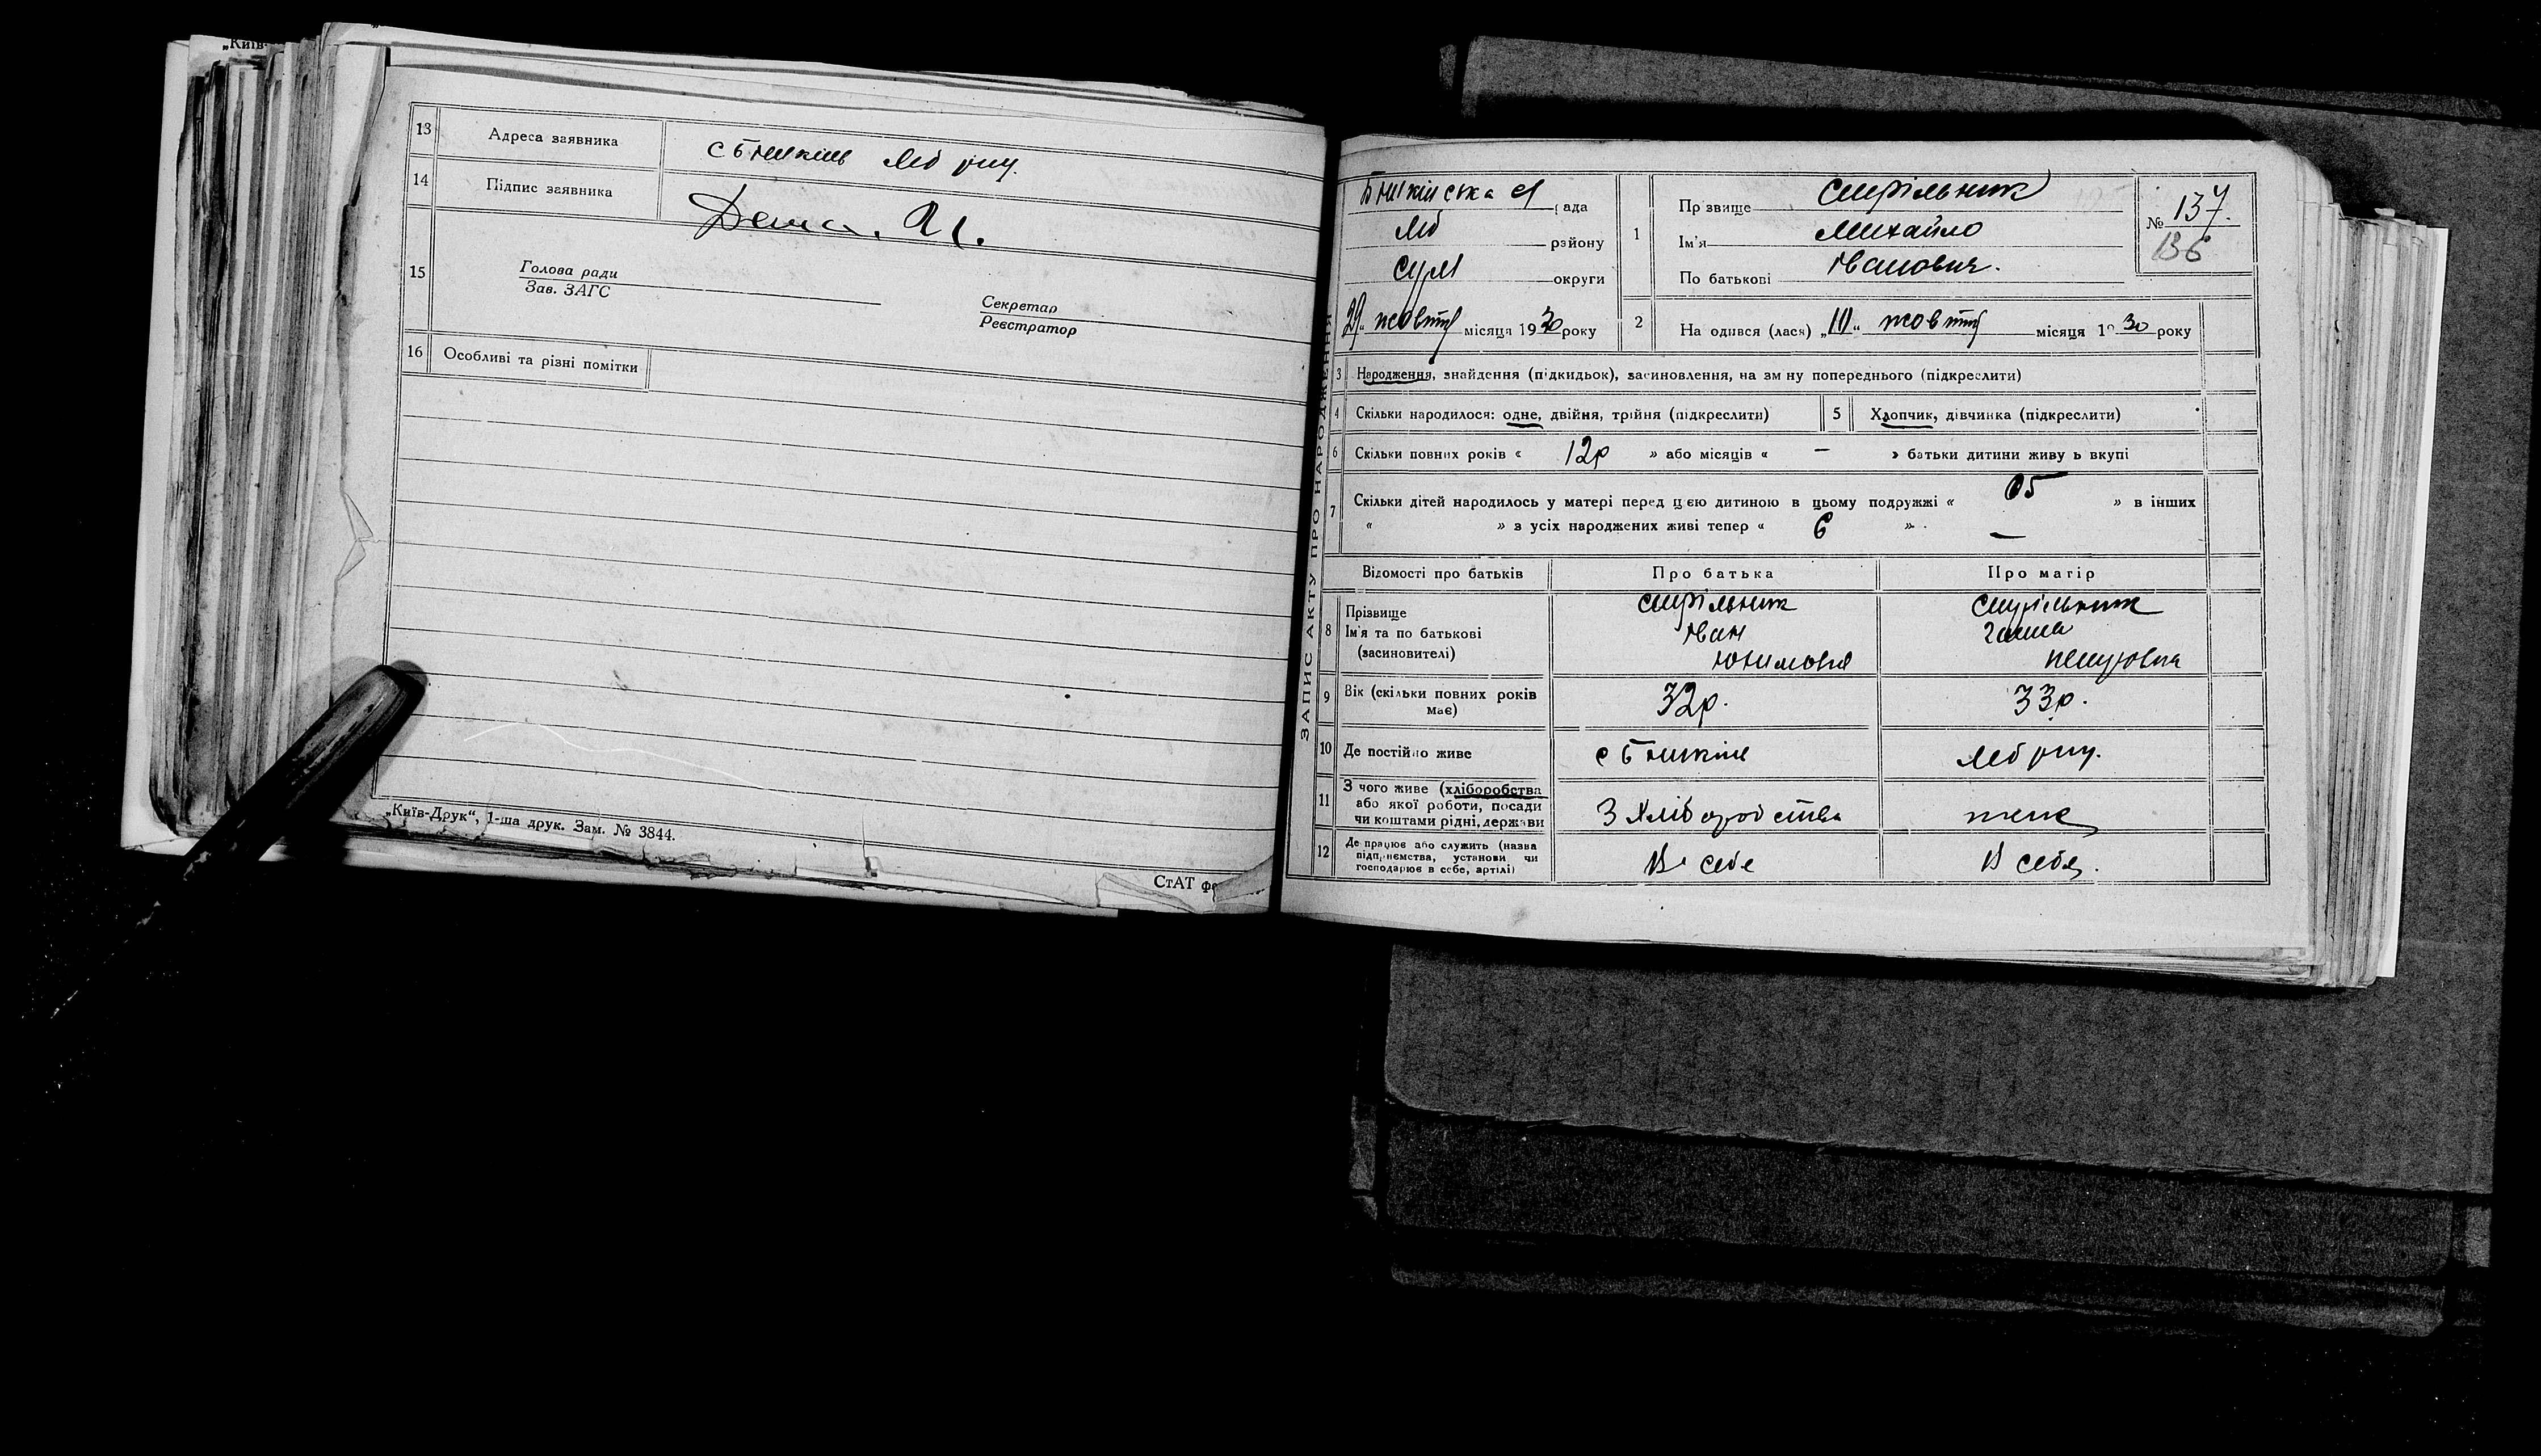 „Київ-
13 Адреса заявника с Бишкінь Леб рну.
14 Підпис заявника
15 Голова ради
Зав. ЗАГС
Секретар
Реєстратор
16 Особливі та різні помітки
„Київ-Друк“, 1-ша друк. Зам. № 3844.
СтАТ
ЗАПИС АКТУ ПРО НАРОДЖЕННЯ
Бишкінська с рада
Леб району
Сум округи
29 жовтн місяця 1930 року
1 Прізвище Стрільник
Ім'я Михайло
По батькові Іванович.
№ 137.
136
2 На одився (лася) „10“ жовтн місяця 19 30 року
3 Народження, знайдення (підкидьок), засиновлення, на зм ну попереднього (підкреслити)
4 Скільки народилося: одне, двійня, трійня (підкреслити) 5 Хлопчик, дівчинка (підкреслити)
6 Скільки повних років « 12р » або місяців « – » батьки дитини живу ь вкупі
7 Скільки дітей народилось у матері перед цією дитиною в цьому подружжі « 05 » в інших
« » в усіх народжених живі тепер « 6 » –
Відомості про батьків Про батька Про матір
8 Прізвище Стрільник Стрільник
Ім'я та по батькові Іван Ганна
(засиновителі) Юхимович Петровна
9 Вік (скільки повних років має) 32р. 33р.
10 Де постійно живе с Бишкінь Леб рну.
11 З чого живе (хліборобства
або якої роботи, посади
чи коштами рідні, держави З хліборобства теж
12 Де працює або служить (назва
підприємства, установи чи
господарює в себе, артілі) В себе В себе.